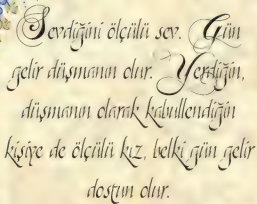 Sevdiğini ölçülü sev. Gün
gelir düşmanın olur. Yerdiğin,
düşmanın olarak kabullendiğin
kişiye de ölçülü kız, belki gün gelir
dostun olur.